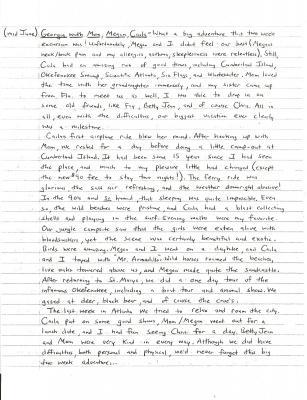 (mid June) Georgia with Mom, Megan, Carla - What a big adventure this two week
excursion was! Unfortunately, Megan and I didnt feel our best (Megans
neck/back pain and my allergies, asthma, sleeplessness were relentless). Still,
Carla had an amazing run of good times, including Cumberland Island,
Okefenokee Swamp, Scientific Atlanta, Six Flags, and Whitewater. Mom loved
the time with her grandaughter immensely, and my sister came up
from Fla. to meet us as well. I was able to drop in on
some old friends, like Fry, Betty Jean, and of cause Chris. All in
all, even with the difficulties, our biggest vacation ever clearly
was a milestone.
Carlas first airplane ride blew her mind. After hooking up with
Mom, we rested for a day before doing a little camp-out at
Cumberland Island. It had been some 15 years since I had seen
the place and much to my pleasure little had changed (except
the new $40 fee to stay two nights!). The ferry ride was
glorious the sea air refreshing, and the weather downright abusive!
In the 90s and so humid that sleeping was quite impossible. Even
so, the wild beaches were pristine and Carla had a blast collecting
shells and playing in the surf. Evening walks were my favorite.
Our jungle campsite saw that the girls were eaten alive with
bloodsuckers, yet the scene was certainly beautiful and exotic.
Birds were amazing, Megan and I went on a dayhike and Carla
and I toyed with Mr. Armadillo. Wild horses roamed the beaches,
live oaks towered above us, and Megan made quite the sandcastle.
After returning to St. Marys, we did a one day tour of the
infamous Okefenokee, including a boat tour and animal show. We
gazed at deer, black bear, and of cause the croc's.
The last week in Atlanta we tried to relax and roam the city.
Carla put on some good shows, Mom/Megan went out for a
lunch date and I had fun seeing Chris for a day. Betty Jean
and Mom were very kind in every way. Although we did have
difficulties, both personal and physical, we'd never forget this big
two week adventure...